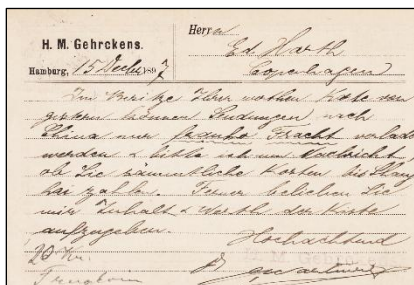 H. M. Gehrckens.
Hamburg, 15 Decbr 1897
Herrn
Ed. Harth
Copenhagen
Im Besitze Ihrer werthen Karte von
gestern können Sendungen nach
China nur franko Fracht verladen
werden & bitte ich um Nachricht
ob Sie sämmtliche Kosten bis Shang
hai zahlen. Ferner belieben Sie
mir Inhalt & Werth der Kiste
aufzugeben.
Hochachtend
20 Kr.